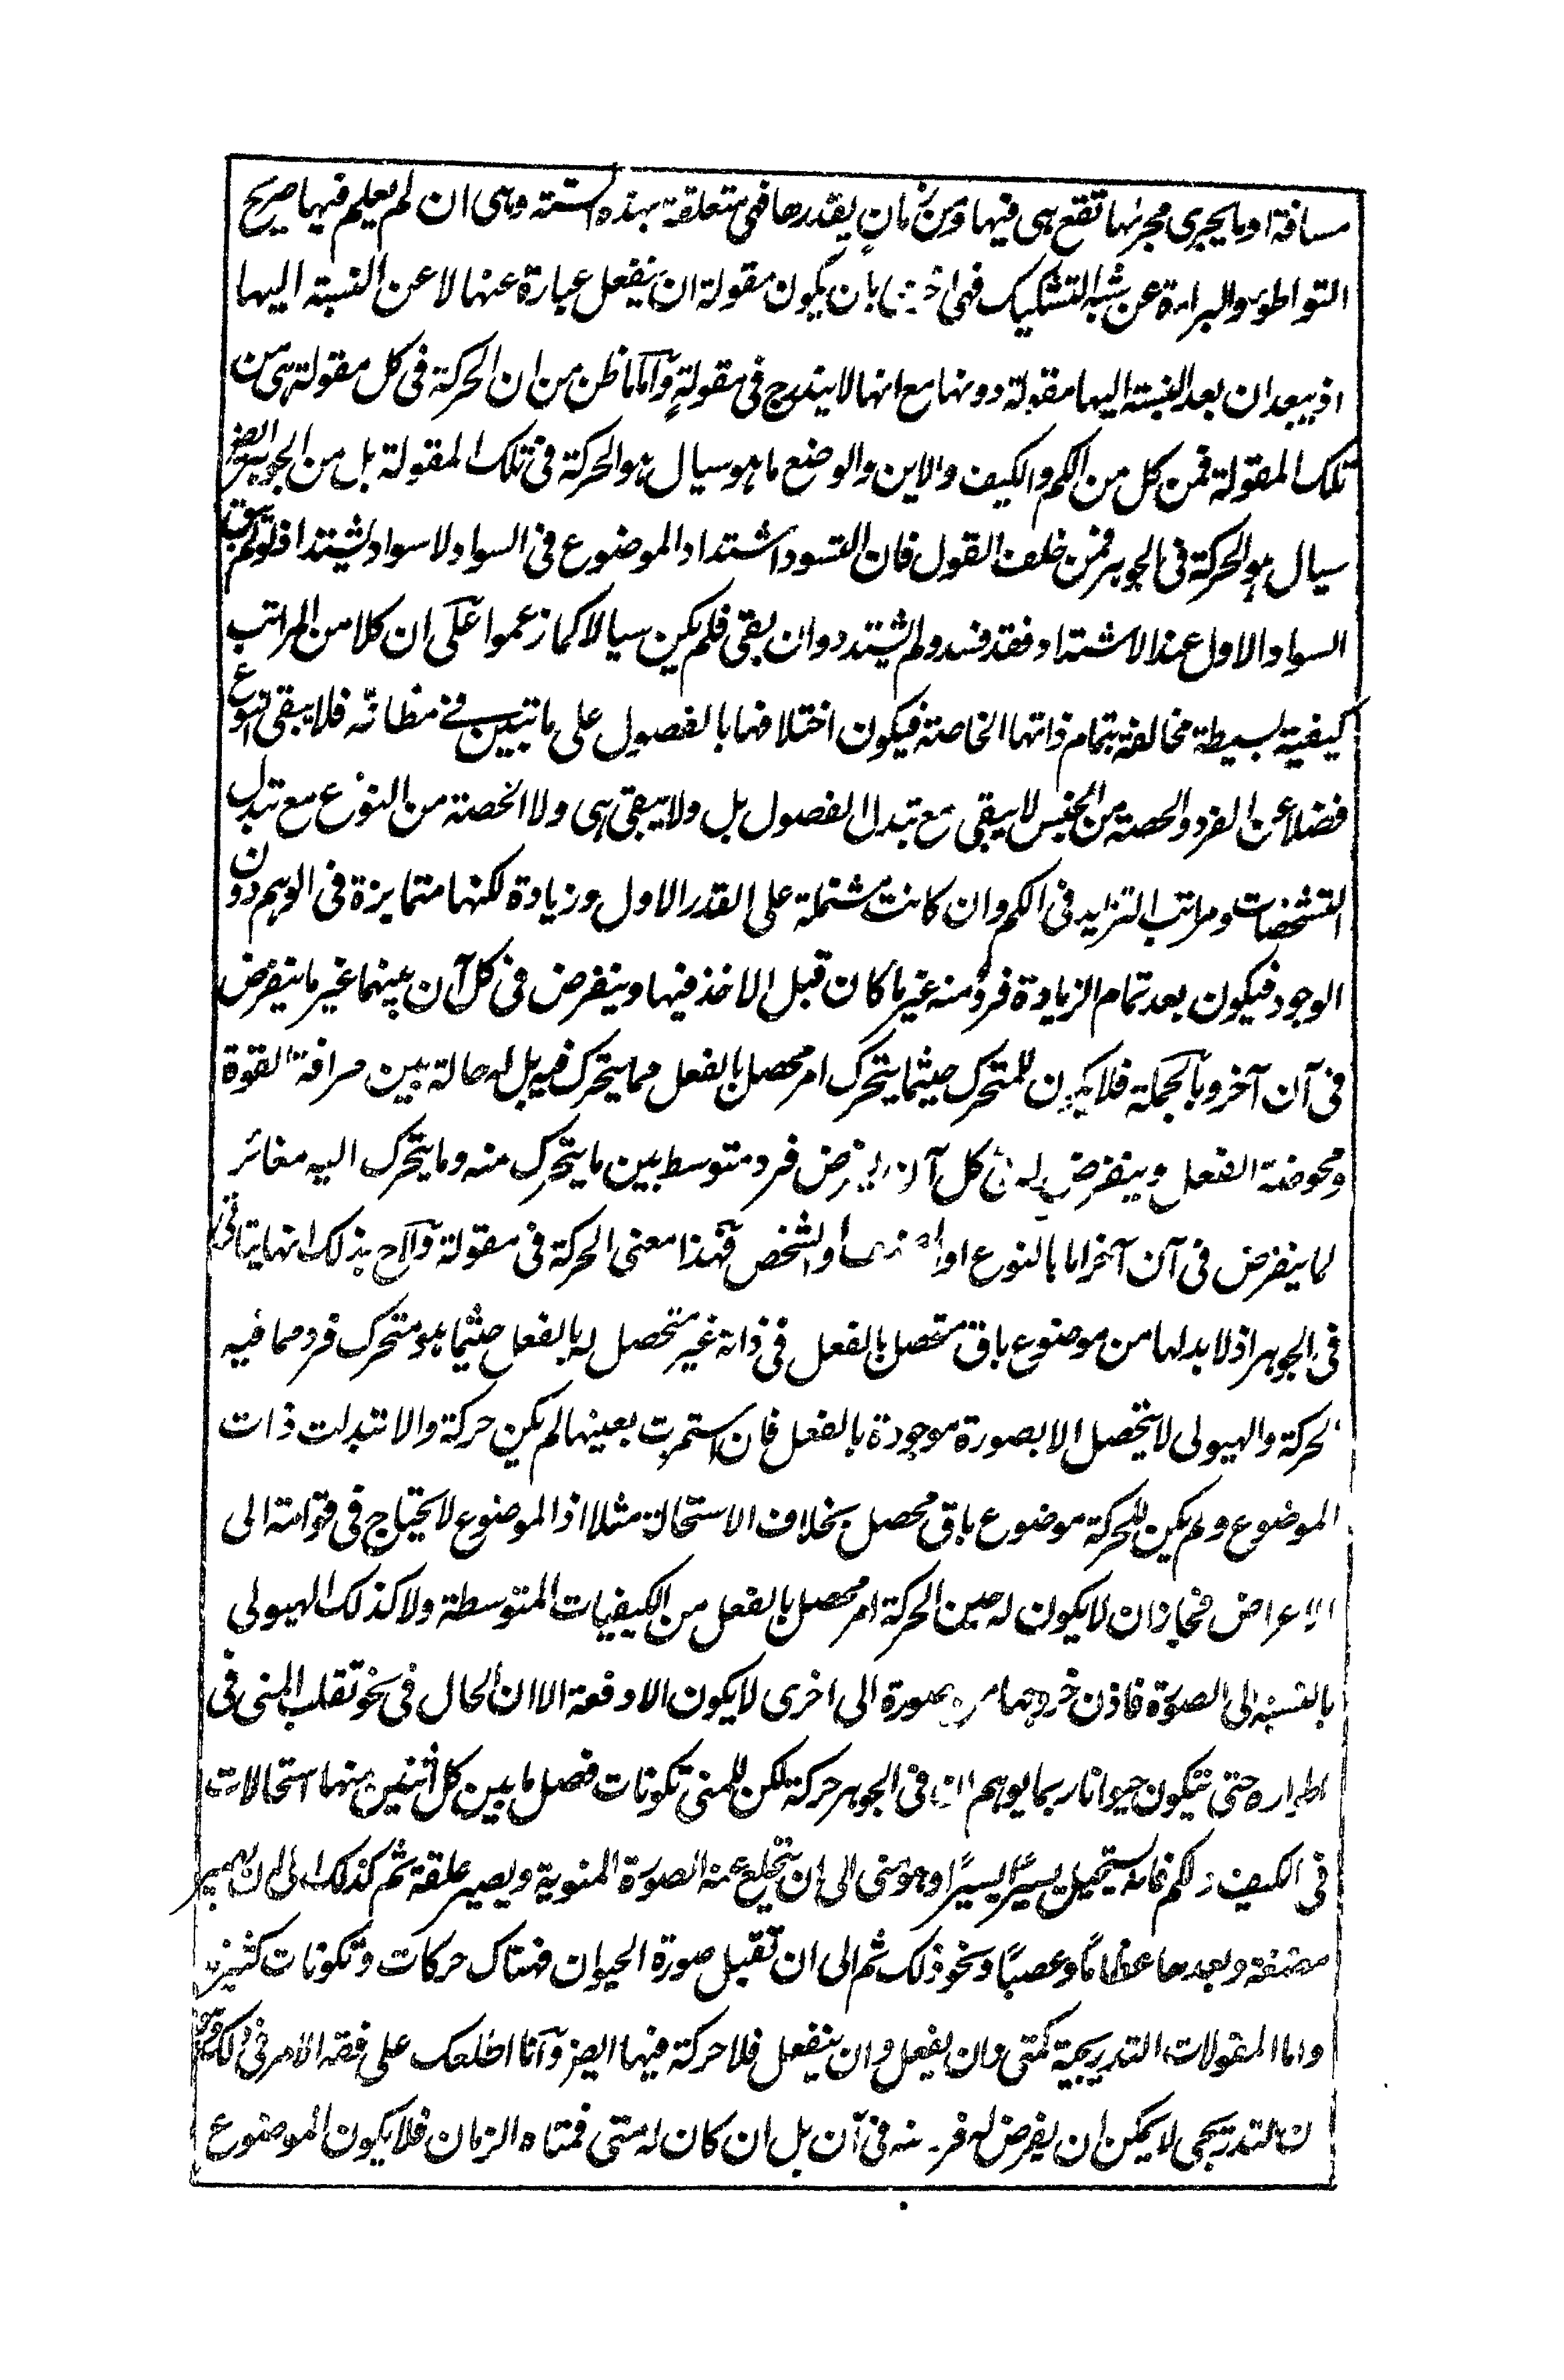 مسافة او ما يجرى مجرىها تقع هى فيها ومن زمان يقدرها فهى متعلقة بهذه الستة وهى ان لم يعلم فيها صريح
التواطوء والبراءة عن شبه التشكيك فهى بان يكون مقولة ان ينفعل عبارة عنها لا عن النسبة اليها
اذ يبعد ان بعد النسبة اليها مقولة دونها مع انها لا يندرج فى مقولة وآما ما ظن من ان الحركة فى كل مقولة هى من
تلك المقولة فمن كل من الكم والكيف والاين والوضع ما هو سيال هو الحركة فى تلك المقولة بل من الجوهر ايضا
سيال هو الحركة فى الجوهر فمن خلف القول فان التسود اشتداد الموضوع فى السواد لا سواد يشتد اذ لو لم يبق
السواد الاول عند الاشتداد فقد فسد ولم يشتد وان بقى فلم يكن سيالا كما زعموا على ان كلا من المراتب
كيفية بسيطة مخالفة بتمام ذاتها الخاصة فيكون اختلافها بالفصول على ما تبين فى مظانه فلا يبقى النوع
فضلا عن الفرد والحصة من الجنس لا يبقى مع تبدل الفصول بل ولا يبقى هى ولا الحصة من النوع مع تبدل
التشخصات ومراتب التزايد فى الكم وان كانت مشتملة على القدر الاول وزيادة لكنها متمايزة فى الوهم دون
الوجود فيكون بعد تمام الزيادة فرد منه غير ما كان قبل الاخذ فيها وينفرض فى كل آن بينهما غير ما ينفرض
فى آن آخر وبالجملة فلا يكون للمتحرك حيثما يتحرك امر محصل بالفعل مما يتحرك فيه بل له حالة بين صرافة القوة
ومحوضة الفعل وينفرض له فى كل آن فرد متوسط بين ما يتحرك منه وما يتحرك اليه مغائر
لما ينفرض فى آن آخر اما بالنوع او او الشخص فهذا معنى الحركة فى مقولة ولاح بذلك انها يتاتى
فى الجوهر اذ لا بد لها من موضوع باق متحصل بالفعل فى ذاته غير متحصل له بالفعل حيثما هو متحرك فرد مما فيه
الحركة والهيولى لا يتحصل الا بصورة موجودة بالفعل فان استمرت بعينها لم يكن حركة والا تبدلت ذات
الموضوع ولم يكن للحركة موضوع باق محصل بخلاف الاستحالة مثلا اذ الموضوع لا يحتاج فى قوامه الى
الاعراض فجاز ان لا يكون له حين الحركة امر محصل بالفعل من الكيفيات المتوسطة ولا كذلك الهيولى
بالنسبة الى الصورة فاذن خروجها من صورة الى اخرى لا يكون الا دفعة الا ان الحال فى نحو تقلب المنى فى
اطواره حتى يتكون حيوانا ربما يوهم ان فى الجوهر حركة لكن للمنى تكونات فصل ما بين كل اثنين منها استحالات
فى الكيف والكم فانه يستحيل يسيرًا يسيرًا وهو منى الى ان يتخلع عنه الصورة المنوية ويصير علقة ثم كذلك الى ان يصير
مضغة وبعدها عظامًا وعصبًا ونحو ذلك ثم الى ان تقبل صورة الحيوان فهناك حركات وتكونات كثيرة
واما المقولات التدريجية كمتى وان يفعل وان ينفعل فلا حركة فيها ايضا وآنا اطلعك على فقه الامر فى ذلك
ن التدريجى لا يمكن ان يفرض له فرد منه فى آن بل ان كان له متى فمتاه الزمان فلا يكون الموضوع